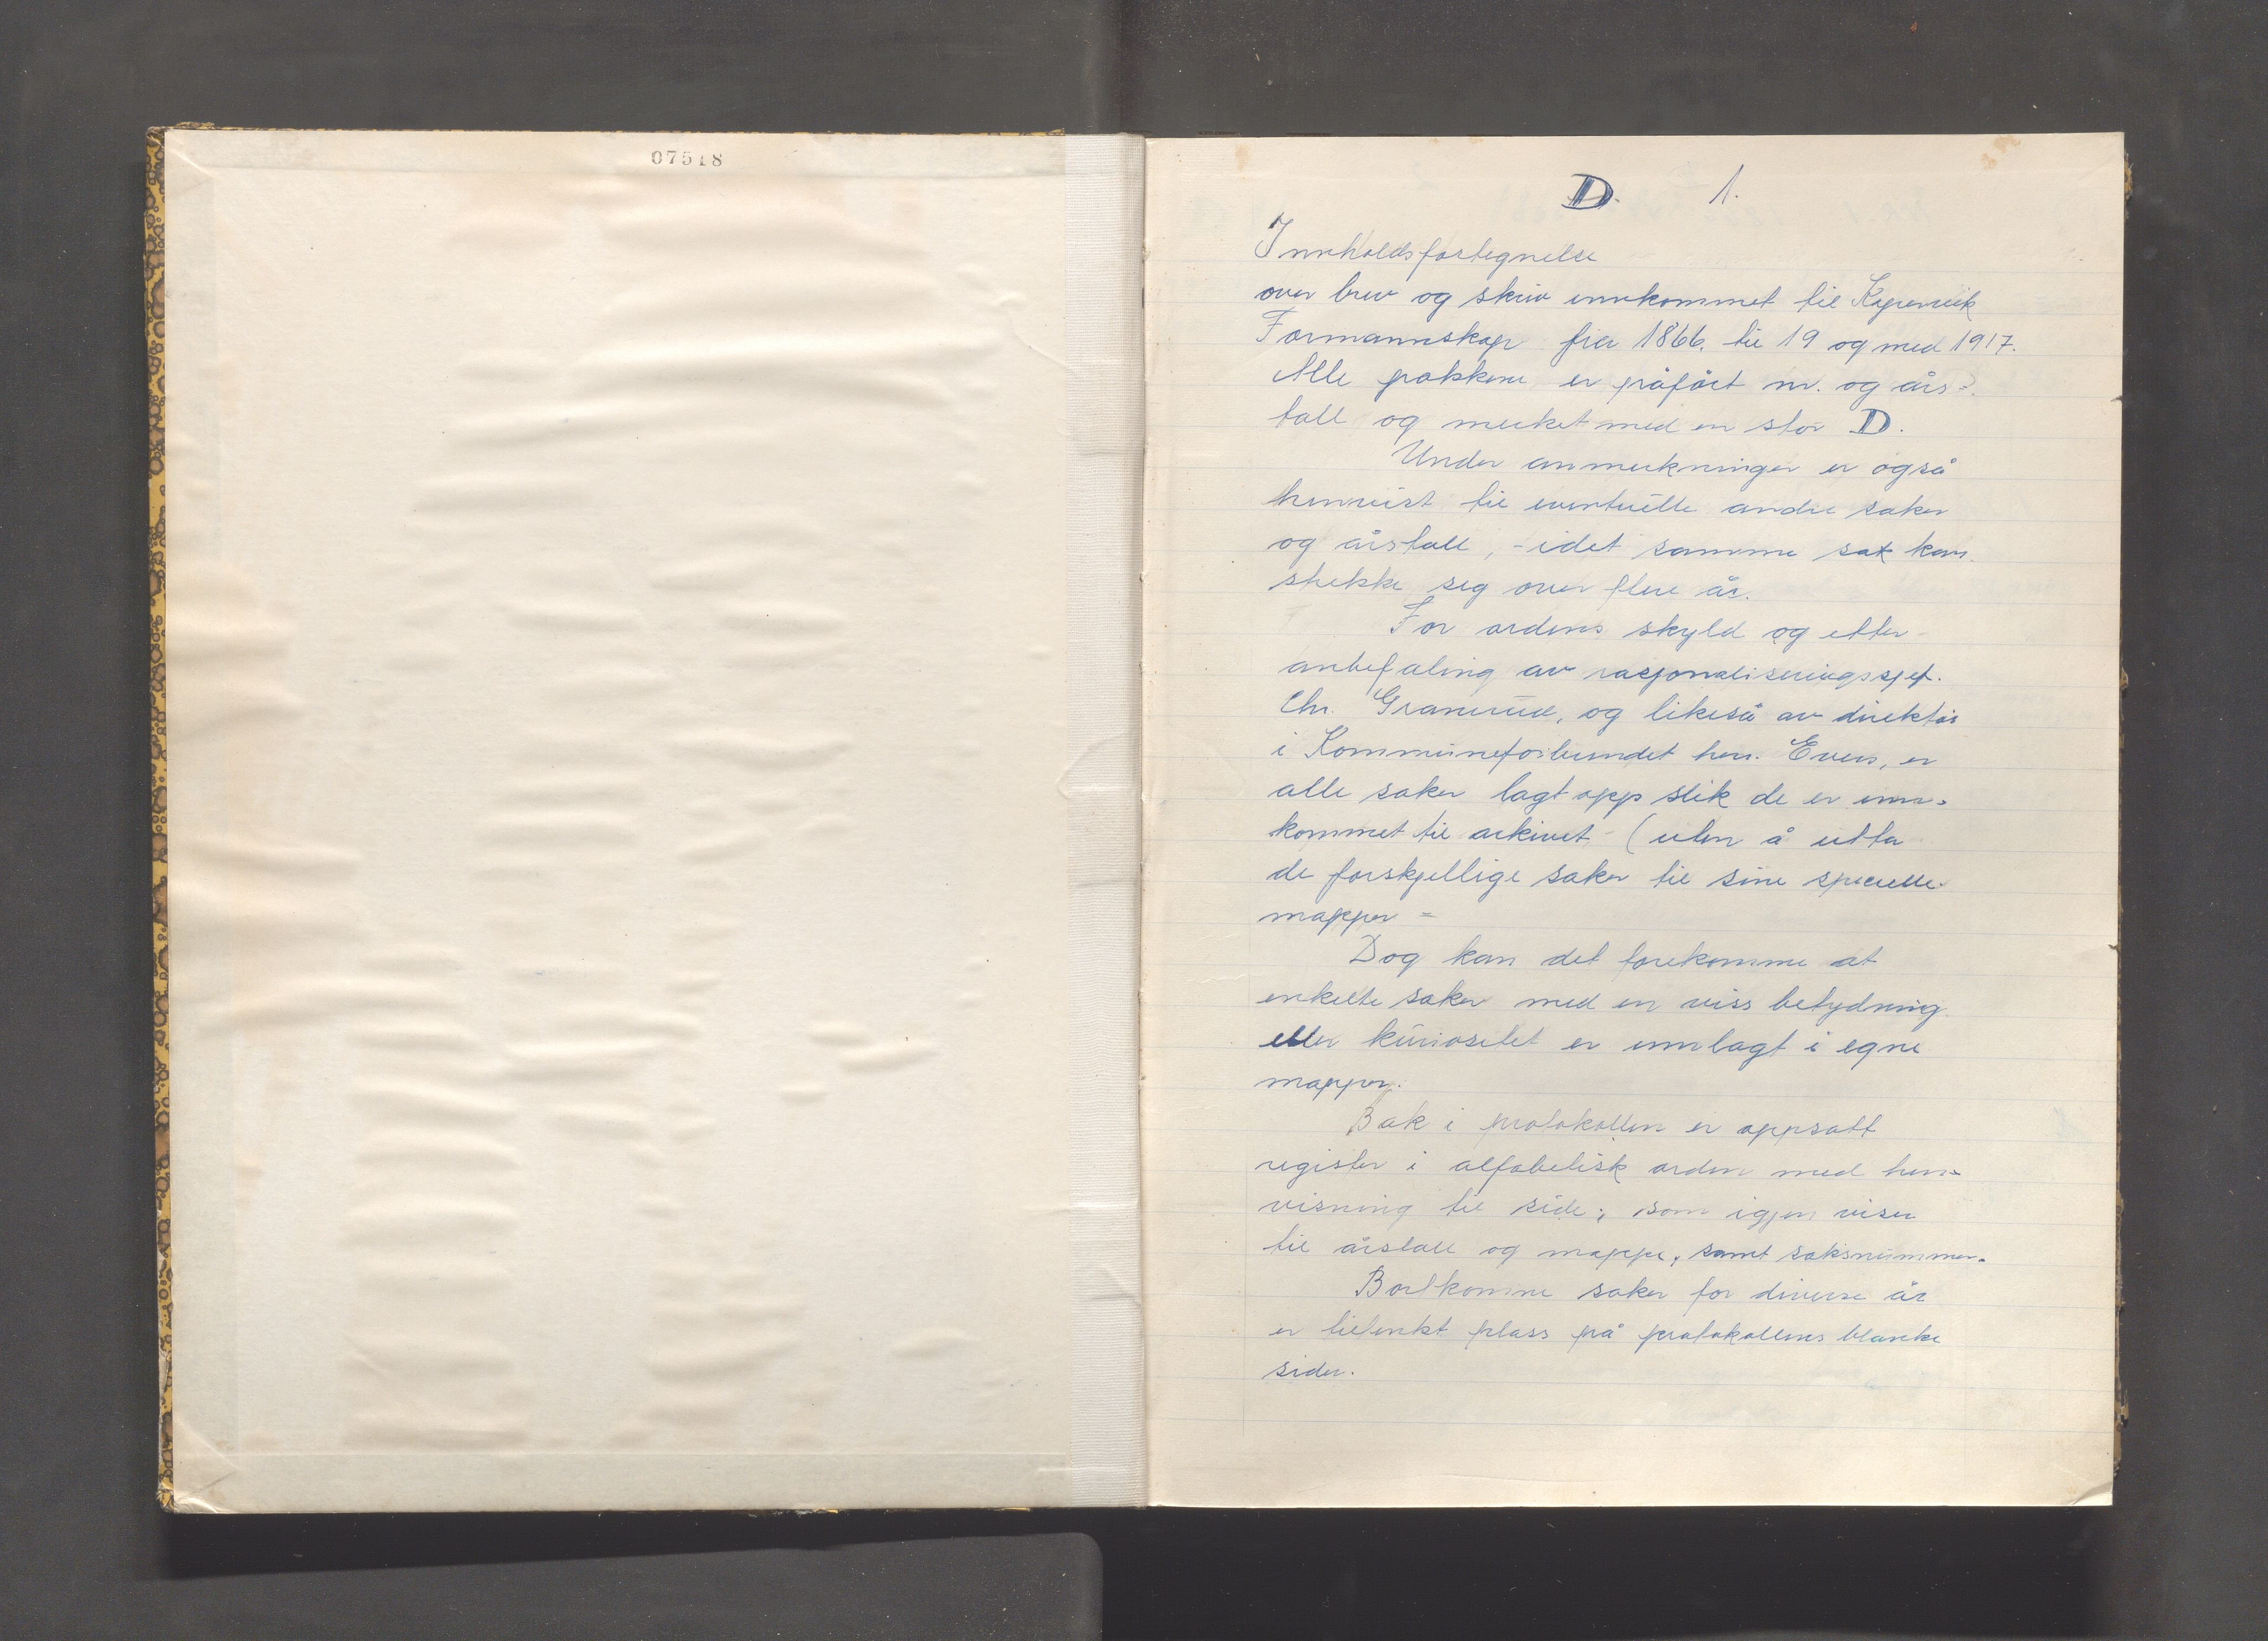 07518
D. 1.
Innholdsfortegnelse
over brev og skriv innkommet til Kopervik
Formannskap fra 1866. til 19 og med 1917.
Alle pakkene er påført nr. og års=
tall og merket med en stor D.
Under anmerkninger er også
henvist til eventuelle andre saker
og årstall, - idet samme sak kan
strekke seg over flere år.
For ordens skyld og etter
anbefaling av rasjonaliseringssjef.
Chr. Granerud, og likeså av direktør
i Kommuneforbundet herr. Evers, er
alle saker lagt opp slik de er inn=
kommet til arkivet (uten å utta
de forskjellige saker til sine spesielle
mapper =
Dog kan det forekomme at
enkelte saker med en viss betydning
eller kuriositet er innlagt i egne
mapper.
Bak i protokollen er oppsatt
register i alfabetisk orden med hen=
visning til side, som igjen viser
til årstall og mappe, samt saksnummer.
Bortkomne saker for diverse år
er tiltenkt plass på protokollens blanke
sider.